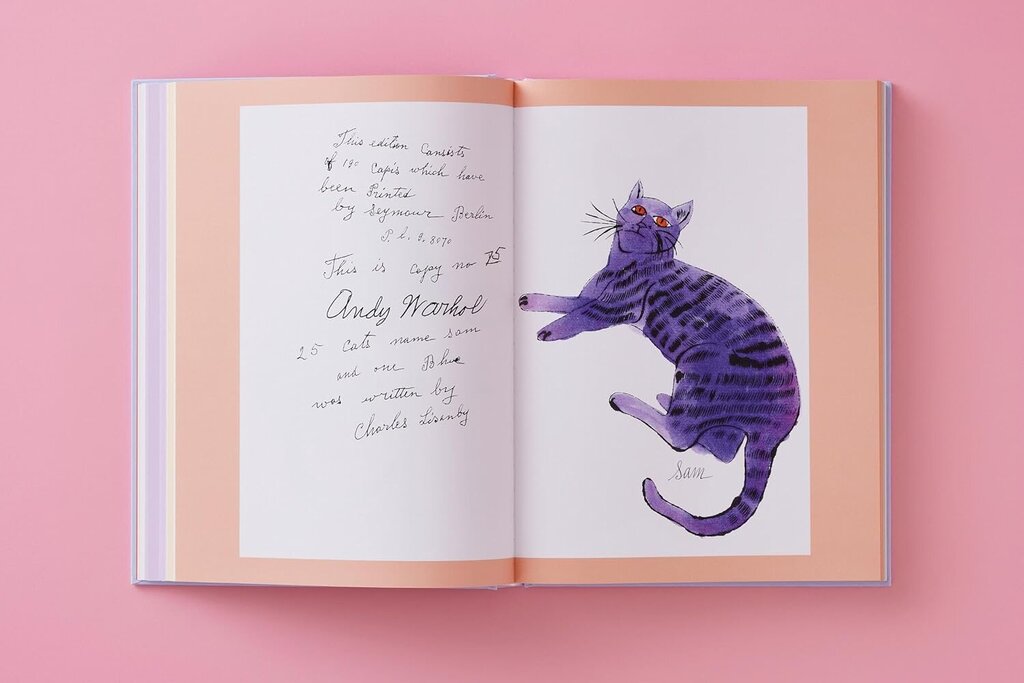 This edition Consists
of 190 Copis which have
been Printed
by Seymour Berlin
P. l. 9. 8070
This is copy no 75
Andy Warhol
25 Cats name sam
and one Blue
was written by
Charles Lisanby
Sam